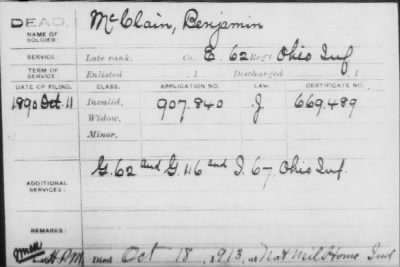 DEAD.
NAME OF SOLDIER: McClain, Benjamin
SERVICE: Late rank, Co. E. 62 Reg't Ohio Inf
TERM OF SERVICE: Enlisted , 1 Discharged , 1
DATE OF FILING. CLASS. APPLICATION NO. LAW. CERTIFICATE NO.
1890 Oct. 11 Invalid, 907.840 J 669.489
Widow,
Minor,
ADDITIONAL SERVICES: G. 62 and G. 116 and I. 67. Ohio Inf.
REMARKS:
Died Oct 18, 1913, at Nat Mil Home Ind